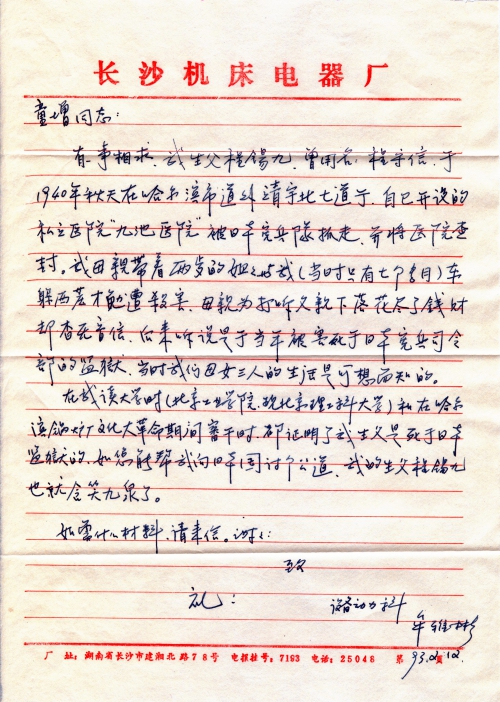 长沙机床电器厂
童增同志:
有事相求,我生父程锡九,曾用名程守信,于
1940年秋天在哈尔滨市道外靖宇北七道街,自己开设的
私立医院"九池医院"被日本宪兵队抓走,并将医院查
封。我母亲带着两岁的姐姐与我(当时只有七个多月)车
躲西差才免遭杀害,母亲为打听父亲下落花尽了钱财
却杳无音信,后来听说是于当年被害死于日本宪兵司令
部的监狱,当时我们母女三人的生活是可想而知的。
在我读大学时(北京工业学院,现北京理工科大学)和在哈尔
滨锅炉厂文化大革命期间审干时,都证明了我生父是死于日本
监狱的,如您能帮我向日本国讨个公道,我的生父程锡九
也就含笑九泉了。
如需什么材料,请来信。谢谢!
致
礼!
设备动力科
牟维彬
93.2.12.
厂 址:湖南省长沙市建湘北路78号 电报挂号:7193 电话:25048 第 页